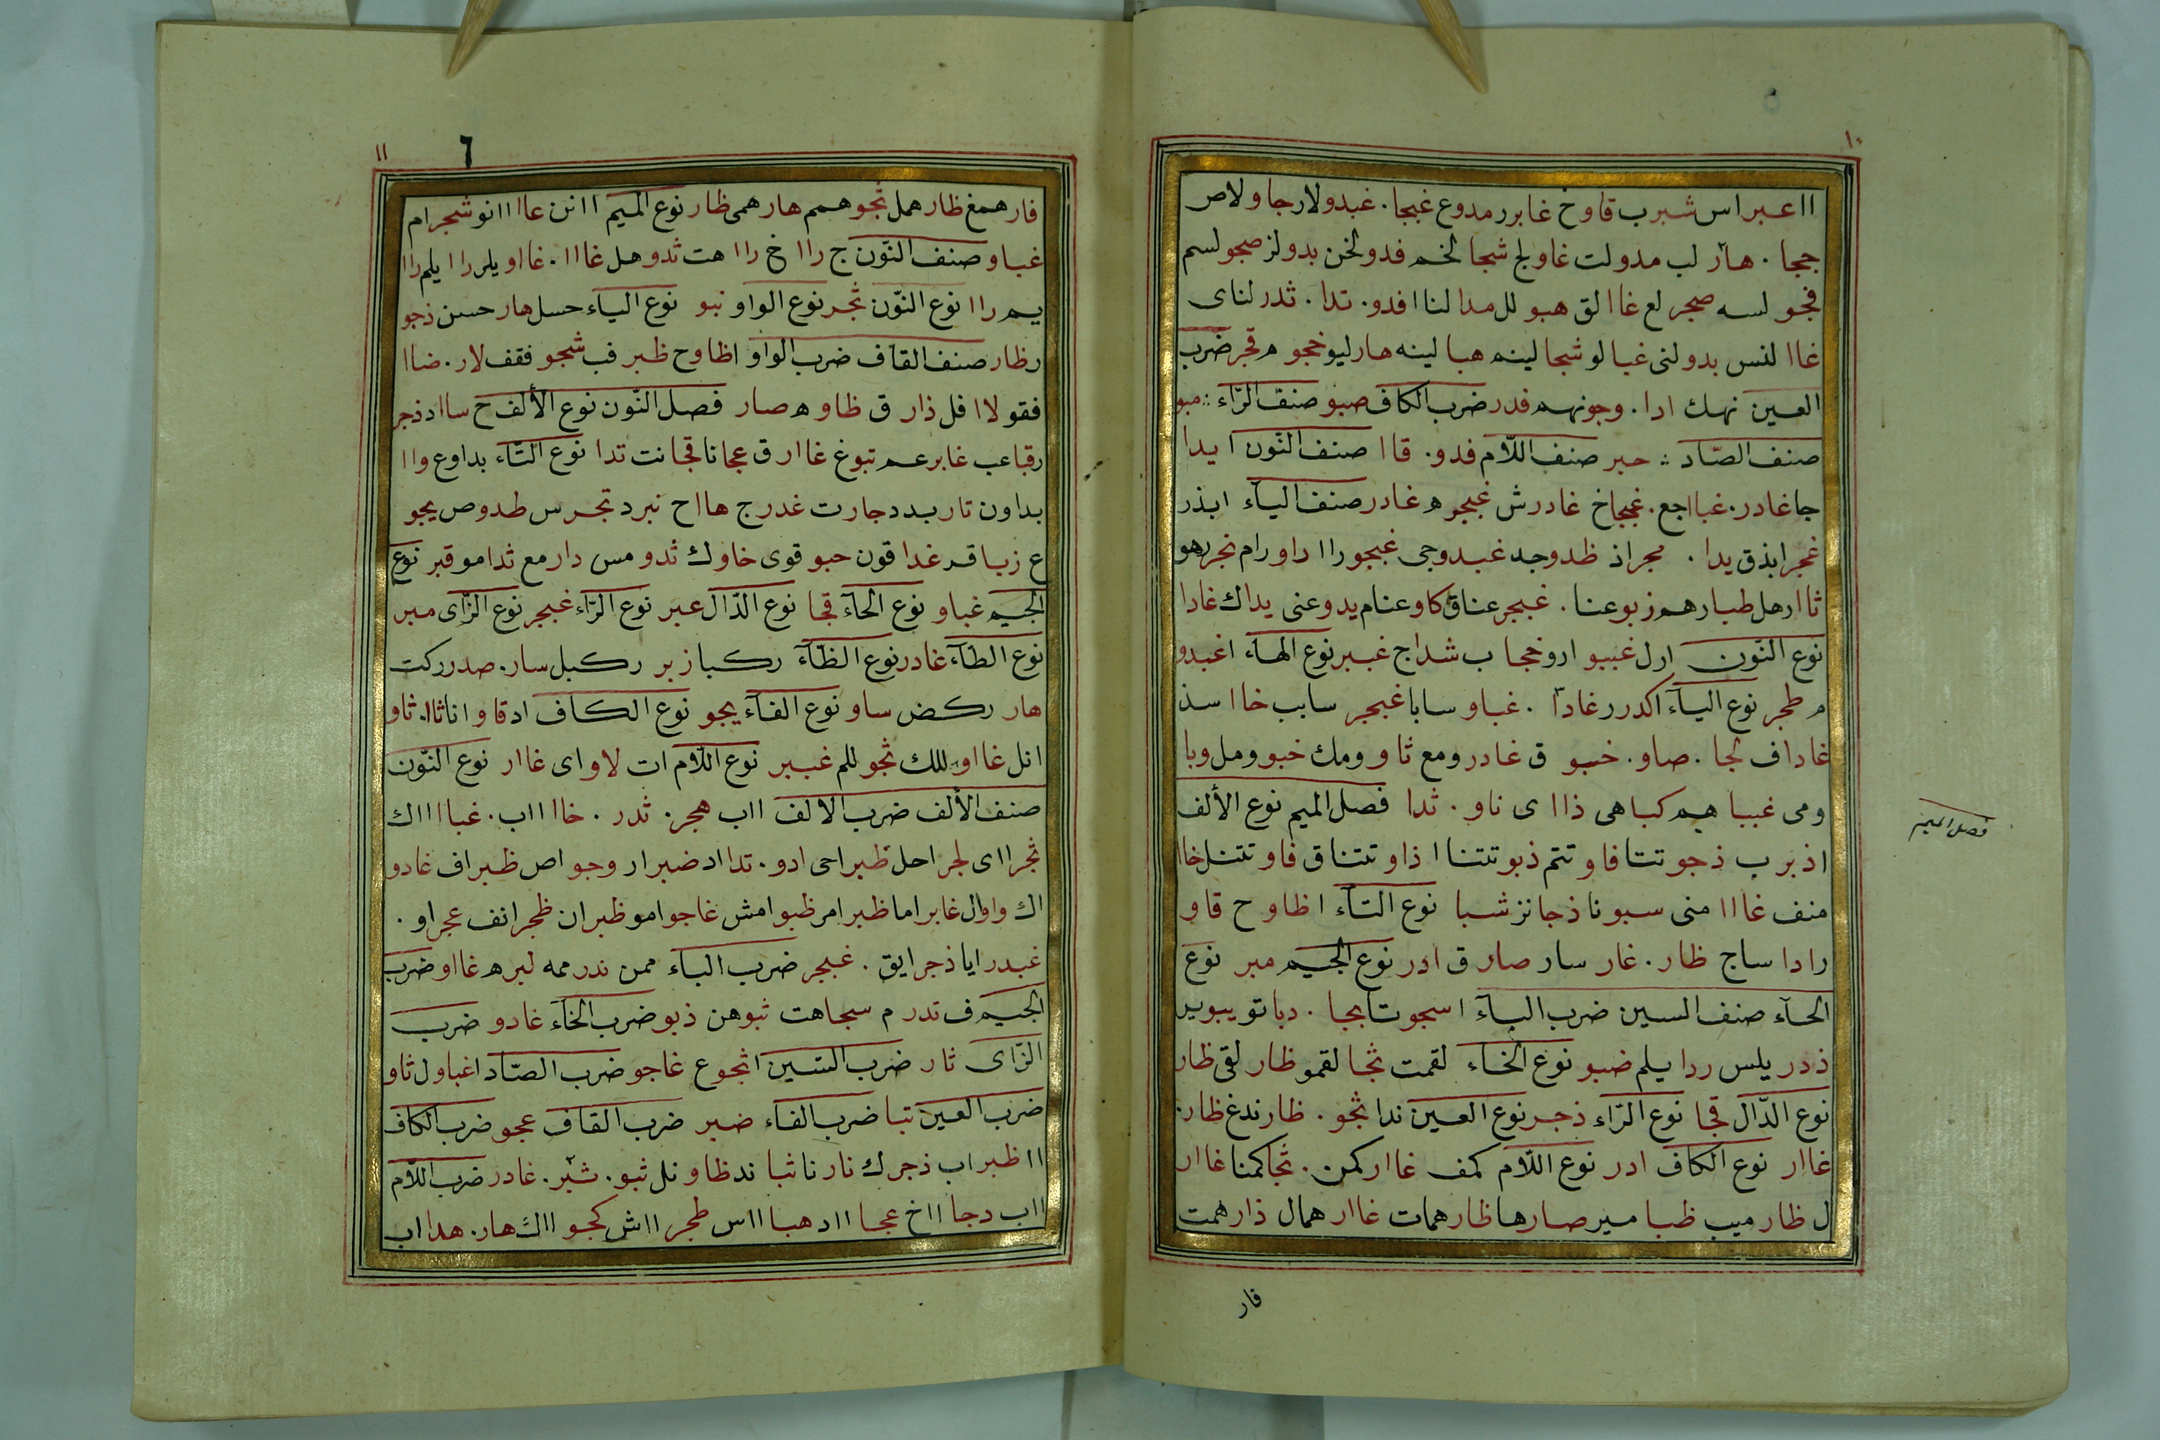 ١٠
ااعبر اس شبرب قاوخ غابرر مدوع غبجا. غبدولارجاولاص
ججا. هار لب مدولت غاولج شجا لخم فدولخن بدولز صجولسم
فجو لسه صجر لع غاالق هبولل مدا لنا افدو. تدا. ثدر لنای
غاا لنس بدولنی غبالو شجا لینم هبا لینه هار لیو خجو م قجر ضرب
العین نهك ادا. وجونهم فدر ضرب الكاف صبو صنف الرّاء :: مبو
صنف الصّاد :: حبر صنف اللّام فدو. قاا صنف النّون ایدا
جاغادر. غبااجع. غججاخ غادرش غبجوه غادر صنف الیآء ابذر
غجر ابذق یدا. مجر اذ ظدوجد غبدوجی غبجو راا راورام نجر رهو
ثاارهل طبارهم زبوعنا. غبجر عناق كاوعنام یدوعنی یداك غادا
نوع النّون ارل غببو اروخجا ب شداج غببر نوع الهآء اغبدو
م طجر نوع الیآء اكدر رغادا. غباو ساباغبجر سابب خاا سذ
غاداف لجا. صاو. خببو ق غادر ومع ثاو ومك خبو ومل وبا
ومی غببا هیم كباهی ذاا ی ناو. ثدا فصل المیم نوع الألف
فصل المیم
اذبرب ذجو تتا فاو تتم ذبو تتنا اذاو تتناق فاو تتنل خاا
منف غااا منی سبونا ذجا نز شبا نوع التآء اظاوح قاو
رادا ساج ظار. غار سار صارق ادر نوع الجیم مبر نوع
الحآء صنف السین ضرب البآء اسجو تابجا. دباتو یبو ید
ذدر یلس ردا یلم ضبو نوع الخآء لقمت ثجا لقمو ظار لقی ظار
نوع الدّال قجا نوع الرّاء ذجر نوع العین ندا ثجو. ظارندغ ظار.
غاار نوع الكاف ادر نوع اللّام كمف غاار كمن. ثجا كمنا غاار
ل ظار میب ظبا میر صارها ظار همات غاار همال ذار همت
فار
١١
٦
فار همغ ظار همل ثجو همم هار همی ظار نوع المیم اانن عاااانو شجر ام
غباو صنف النّون ج راا خ راا هت ثدو هل غااا. غااو یلر راا یلم راا
یم راا نوع النّون ثجر نوع الواو نبو نوع الیآء حسل هار حسن ذجو
رظار صنف القاف ضرب الواو اظاوح ظبر فب شجو فقف لار. ضاا
فقو لاا فل ذار ق ظاوه صار فصل النّون نوع الألف ح سااد ذجر
رقباعب غابرعم تبوغ غاارق عجانا قجا نت تدا نوع التّآء بداوع واا
بداون تاربدد جارت غدرج هااح نبرد تجرس طدوص یجو
ع زباقد غدا قون حبو قوی خاوك ثدو مس دار مع ثدا مو قبر نوع
الجیم غباو نوع الحآء قجا نوع الدّال عبر نوع الرّاء غبجر نوع الزّای مبر
نوع الطّآء غادر نوع الظّآء ركبا زبر ركبل سار. صدر ركت
هار ركض ساو نوع الفآء یجو نوع الكاف ادقا وانا ثاا. ثاو
انل غااو. للك ثجو للم غببر نوع اللّام ات لاو ای غاار نوع النّون
صنف الألف ضرب الالف ااب هجر. ثدر. خاااب. غباااااك
ثجر اای لجر احل ظبر احی ادو. تدا اد ضبر ار وجو اص ظبر اف غادو
اك واوال غابر اما ظبر امر ظبو امش غاجو امو ظبر ان ظجر انف عجر او.
غبدر ایا ذجر ایق. غبجر ضرب البآء ممن ندر ممه لبره غااو ضرب
الجیم ف تدر م سجاهت ثبوهن ذبو ضرب الخآء غادو ضرب
الزّای ثار ضرب السّین اثجوع غاجو ضرب الصّاد اغباول ثاو
ضرب العین تبا ضرب الفاء ضبر ضرب القاف عجو ضرب الكاف
اا ظبر اب ذجر ك نار نا ثبا ند ظاو نل ثبو. شبر. غادر ضرب اللّام
ااب دجا ااخ عجا ااد هبا ااس طجر ااش كجو ااك هار. هدا اب